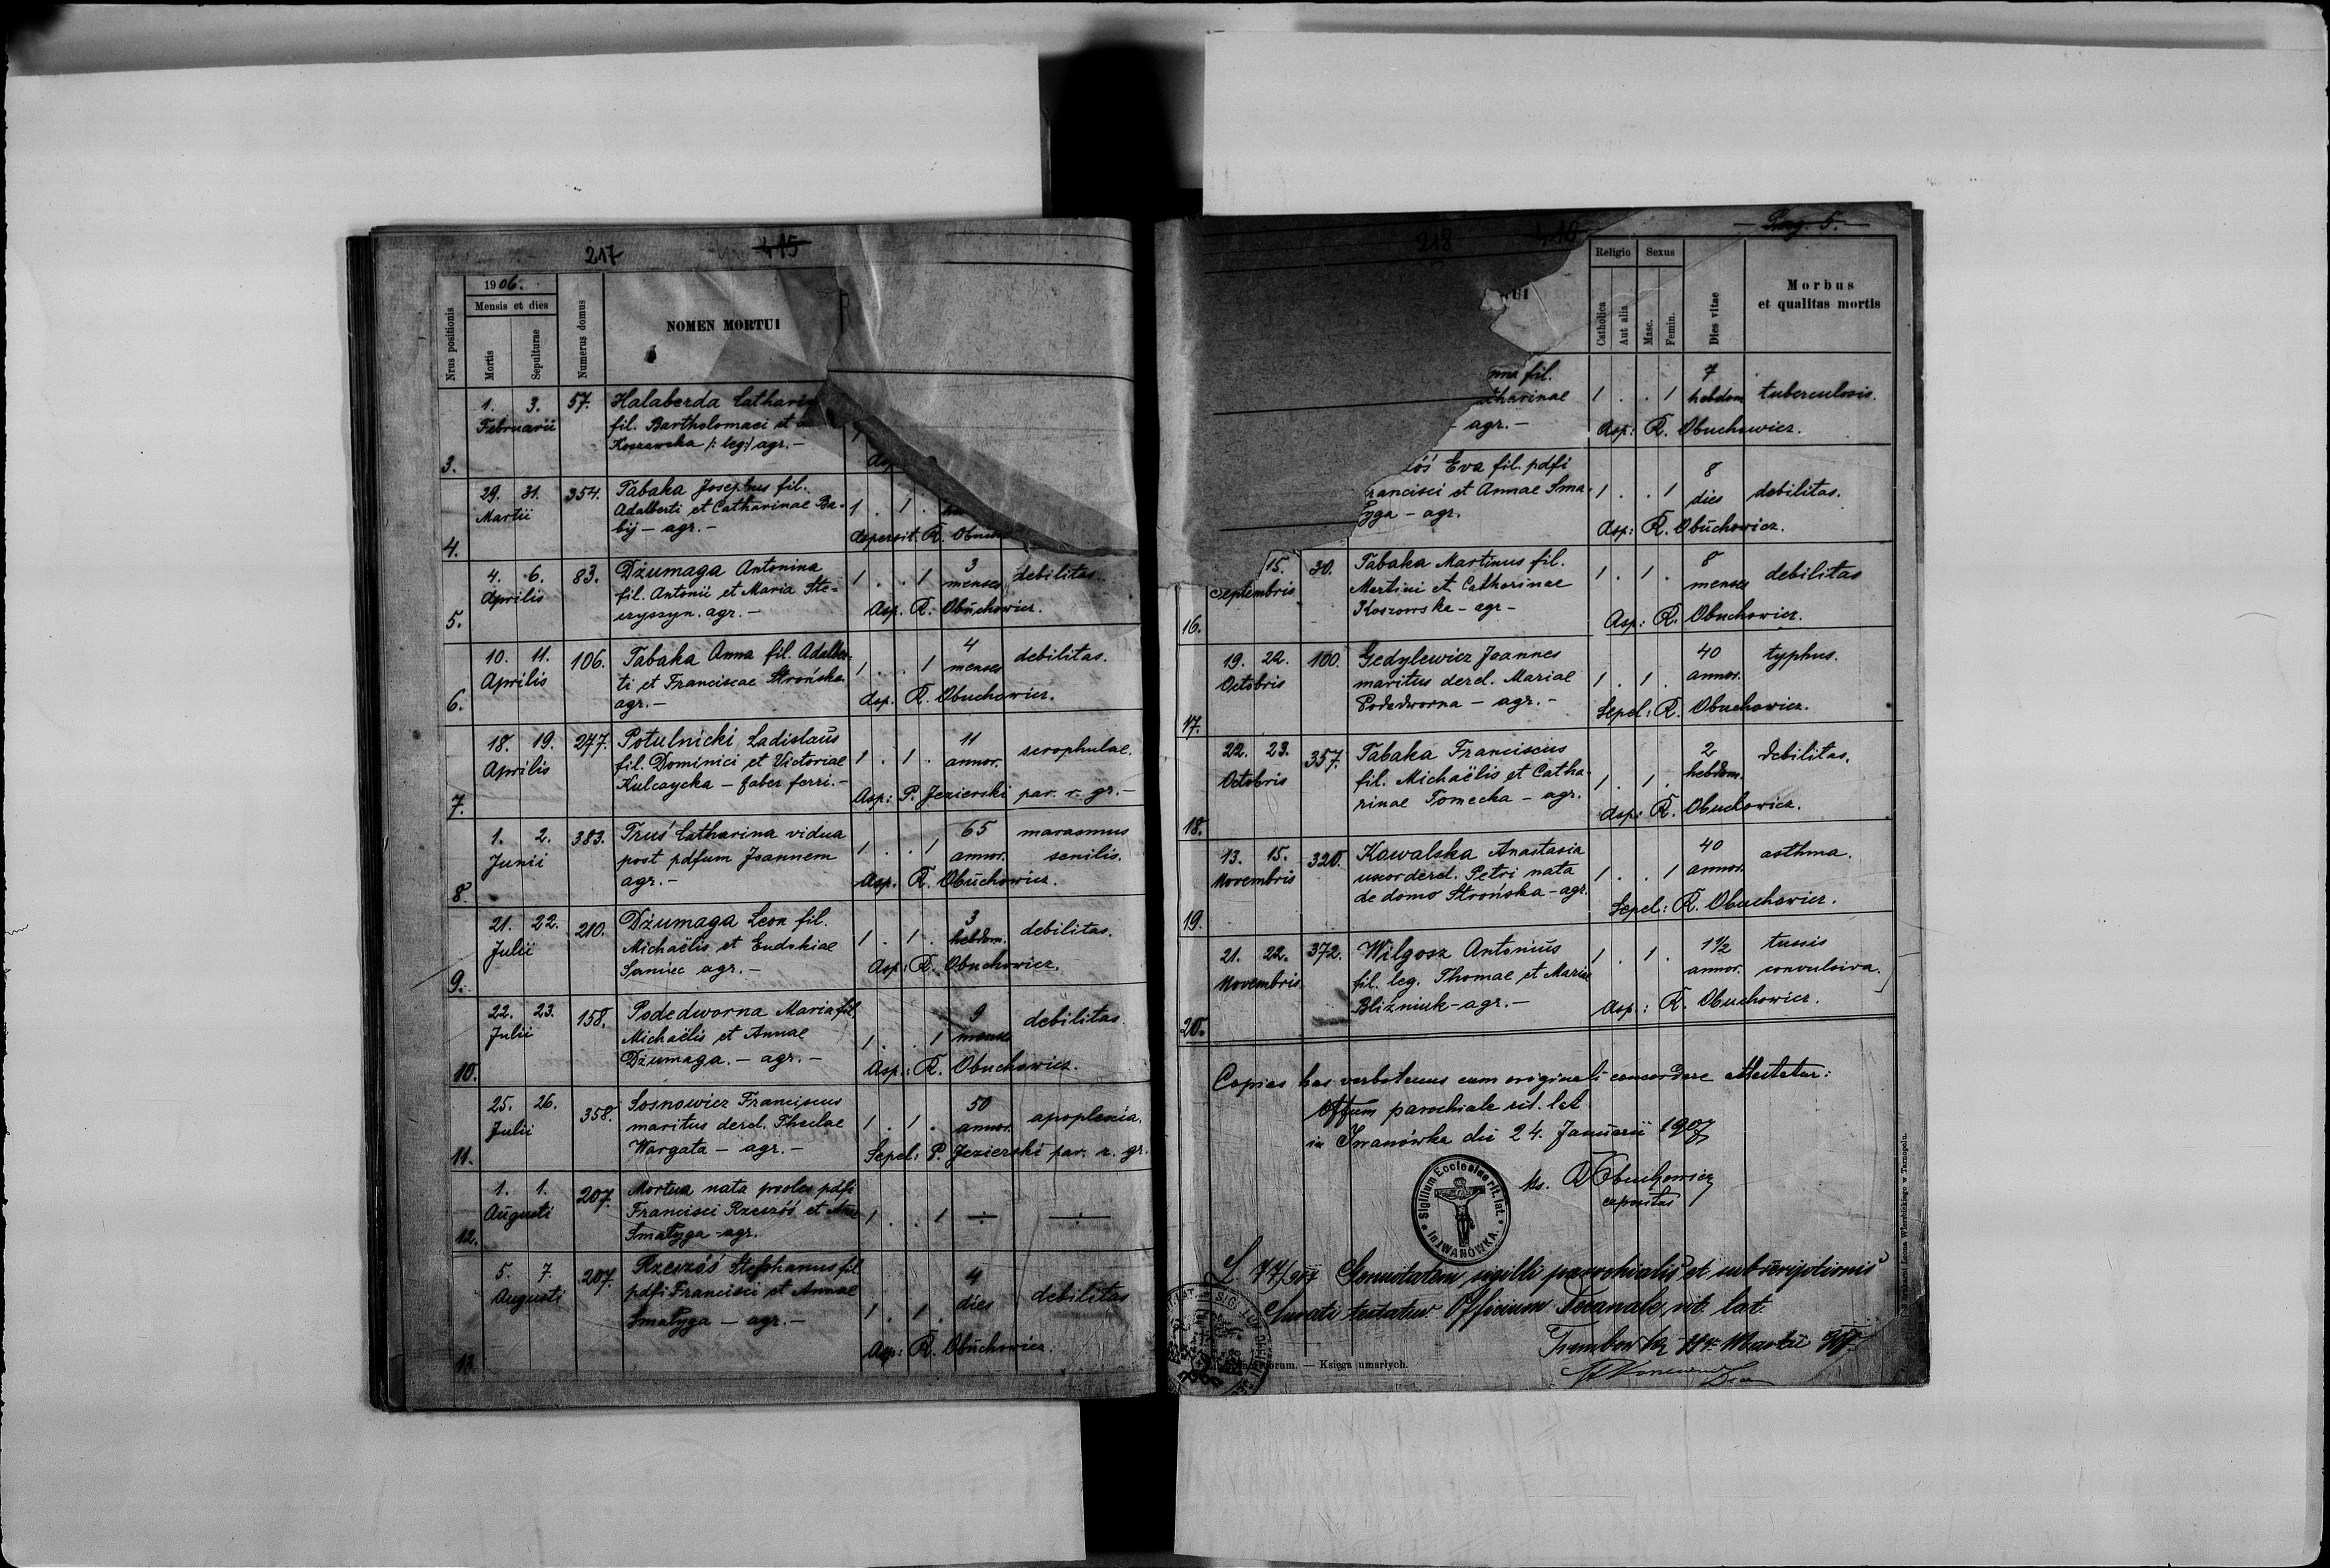 217 415
1906.
Mensis et dies
Nrus positionis
Mortis
Sepulturae
Numerus domus
NOMEN MORTUI
1. 3. 57. Halaberda Catharin
Februarii fil. Bartholomaei et
Koszowska /: leg:/ agr. —
3.
29. 31. 354. Tabaka Josephus fil.
Martii Adalberti et Catharinae Ba- 1 . 1 .
bij — agr. —
4. Aspersit. R. Obuch
4. 6. 83. Dżumaga Antonina 1 . . 1 3 menses debilitas.
Aprilis fil. Antonii et Maria Ste-
cryszyn. agr. — Asp. R. Obuchowicz.
5.
10. 11. 106. Tabaka Anna fil. Adalber- 1 . . 1 4 menses debilitas.
Aprilis ti et Franciscae Strońska
agr. — Asp. R. Obuchowicz.
6.
18. 19. 247. Potulnicki Ladislaus 1 . 1 . 11 annor. scrophulae.
Aprilis fil. Dominici et Victoriae
Kulczycka — faber ferri. — Asp: P. Jezierski par. r. gr. —
7.
1. 2. 383. Truś Catharina vidua 1 . . 1 65 annor. marasmus senilis.
Junii post pdfum Joannem
agr. — Asp. R. Obuchowicz.
8.
21. 22. 210. Dżumaga Leon fil. 1 . 1 . 3 hebdom. debilitas.
Julii Michaëlis et Eudokiae
Saniec agr. — Asp: R. Obuchowicz.
9.
22. 23. 158. Podedworna Maria fil 1 . . 1 9 menses debilitas.
Julii Michaëlis et Annae
Dżumaga. — agr. — Asp.: R. Obuchowicz.
10.
25. 26. 358. Sosnowicz Franciscus 1 . 1 . 50 annor. apoplexia.
Julii maritus derel. Theclae
Wargata — agr. — Sepel: P. Jezierski par. r. gr.
11.
1. 1. 207. Mortua nata proles pdfi
Augusti Francisci Rzeszóś et Annae 1 . . 1 ÷ ÷
Smatyga - agr.
12.
5. 7. 207. Rzeszóś Stephanus fil. 4 dies debilitas
Augusti pdfi Francisci et Annae 1 . 1 .
Smatyga — agr. —
13. Asp: R. Obuchowicz.
218 416
— Pag. 5. —
UI
Religio
Sexus
Catholica
Aut alia
Masc.
Femin.
Dies vitae
Morbus
et qualitas mortis
nna fil. 7
atharinae 1 . . 1 hebdom tuberculosis.
— agr. — Asp: R. Obuchowicz.
óś Eva fil. pdfi 8
rancisci et Annae Sma- 1 . . 1 dies debilitas.
yga — agr.
Asp: R. Obuchowicz.
15. 30. Tabaka Martinus fil. 1 . 1 . 8 menses debilitas
Septembris Martini et Catharinae
Koszowska — agr —
16. Asp: R. Obuchowicz.
19. 22. 100. Gedylewicz Joannes 40 annor. typhus.
Octobris maritus derel. Mariae 1 . 1 .
Pododworna — agr. — Sepel: R. Obuchowicz.
17.
22. 23. 357. Tabaka Franciscus 2 hebdom. debilitas.
Octobris fil. Michaëlis et Catha- 1 . 1 .
rinae Tomecka — agr.
18. Asp: R. Obuchowicz.
13. 15. 320. Kowalska Anastasia 40 annor. asthma.
Novembris uxor derel. Petri nata 1 . . 1
de domo Strońska — agr. Sepel: R. Obuchowicz.
19.
21. 22. 372. Wilgosz Antonius 1 . 1 . 1½ annor. tussis convulsiva.
Novembris fil. leg. Thomae et Mariae
Bliźniuk — agr. — Asp: R. Obuchowicz.
20.
Copias has verbotenus cum originali concordare attestatur:
Offum parochiale rit. lat
in Iwanówka die 24. Januarii 1907
Sigillum Ecclesiae rit. lat. in IWANÓWKA.
Ks. Obuchowicz
expositus
L 77/907 Genuitatem sigilli parochialis et subscriptionis
Curati testatur Officium Decanale rit. lat.
Trembowla Martii 907
orum. — Księga umarłych.
Z drukarni Leona Wierzbickiego w Tarnopolu.